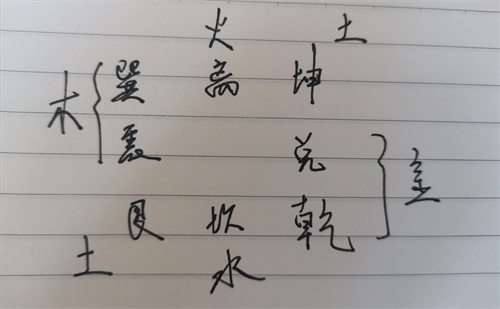 火 土
木 巽 离 坤
震 兑 金
艮 坎 乾
土 水